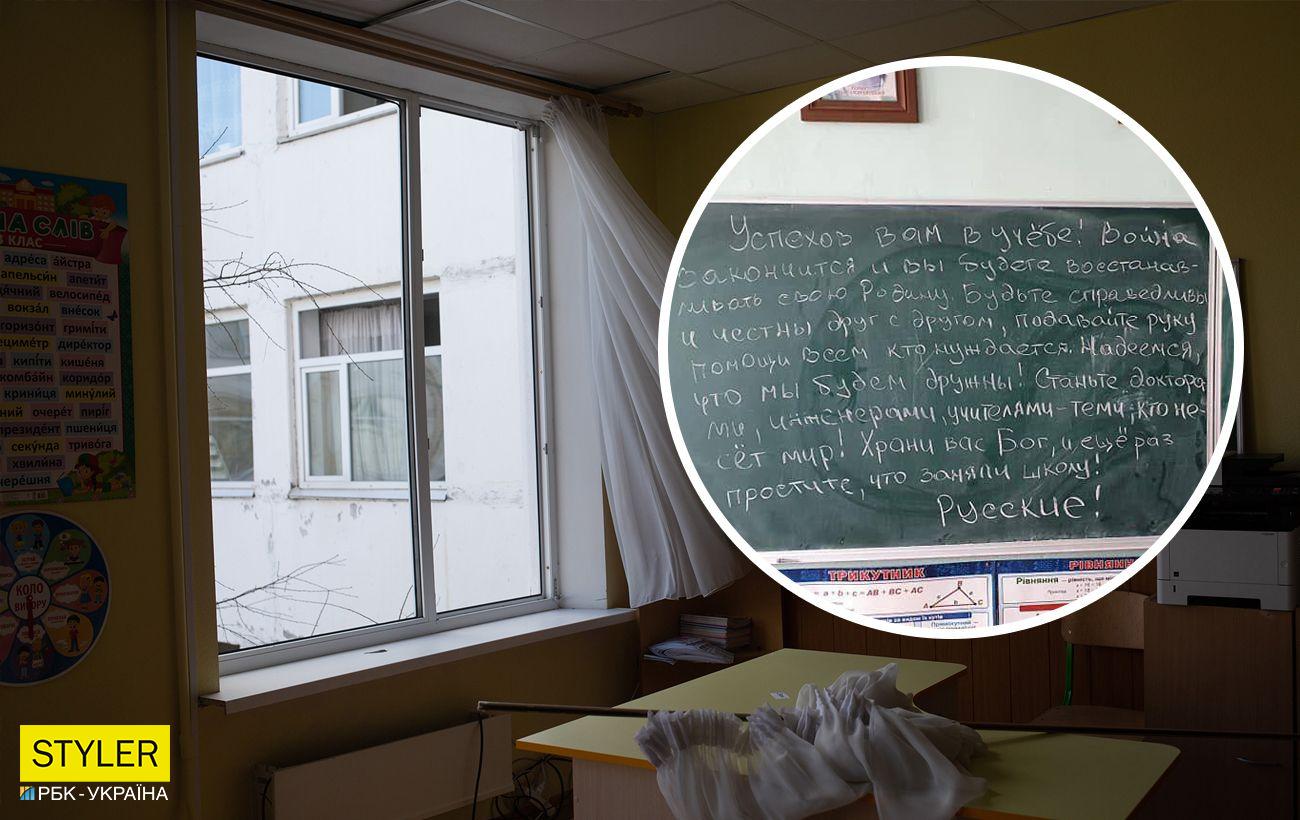 НА СЛІВ
3 КЛАС
адре́са а́йстра
апельси́н апети́т
велосипе́д
вокза́л вне́сок
горизо́нт гримі́ти
дире́ктор
кипі́ти кише́ня
комба́йн коридо́р
крини́ця мину́лий
очере́т пирі́г
президе́нт пшени́ця
секу́нда триво́га
хвили́на
чере́шня
КОЛО
ВИБОРУ
Успехов вам в учёбе! Война
закончится и вы будете восстанав-
ливать свою Родину. Будьте справедливы
и честны друг с другом, подавайте руку
помощи всем кто нуждается. Надеемся,
что мы будем дружны! Станьте доктора-
ми, инженерами, учителями-теми, кто не-
сёт мир! Храни вас Бог, и ещё раз
простите, что заняли школу!
Русские!
ТРИКУТНИК
= a + b + c = AB + BC + AC
A B C
РІВНЯНН
Рівняння — рівність, що
STYLER
РБК-УКРАЇНА